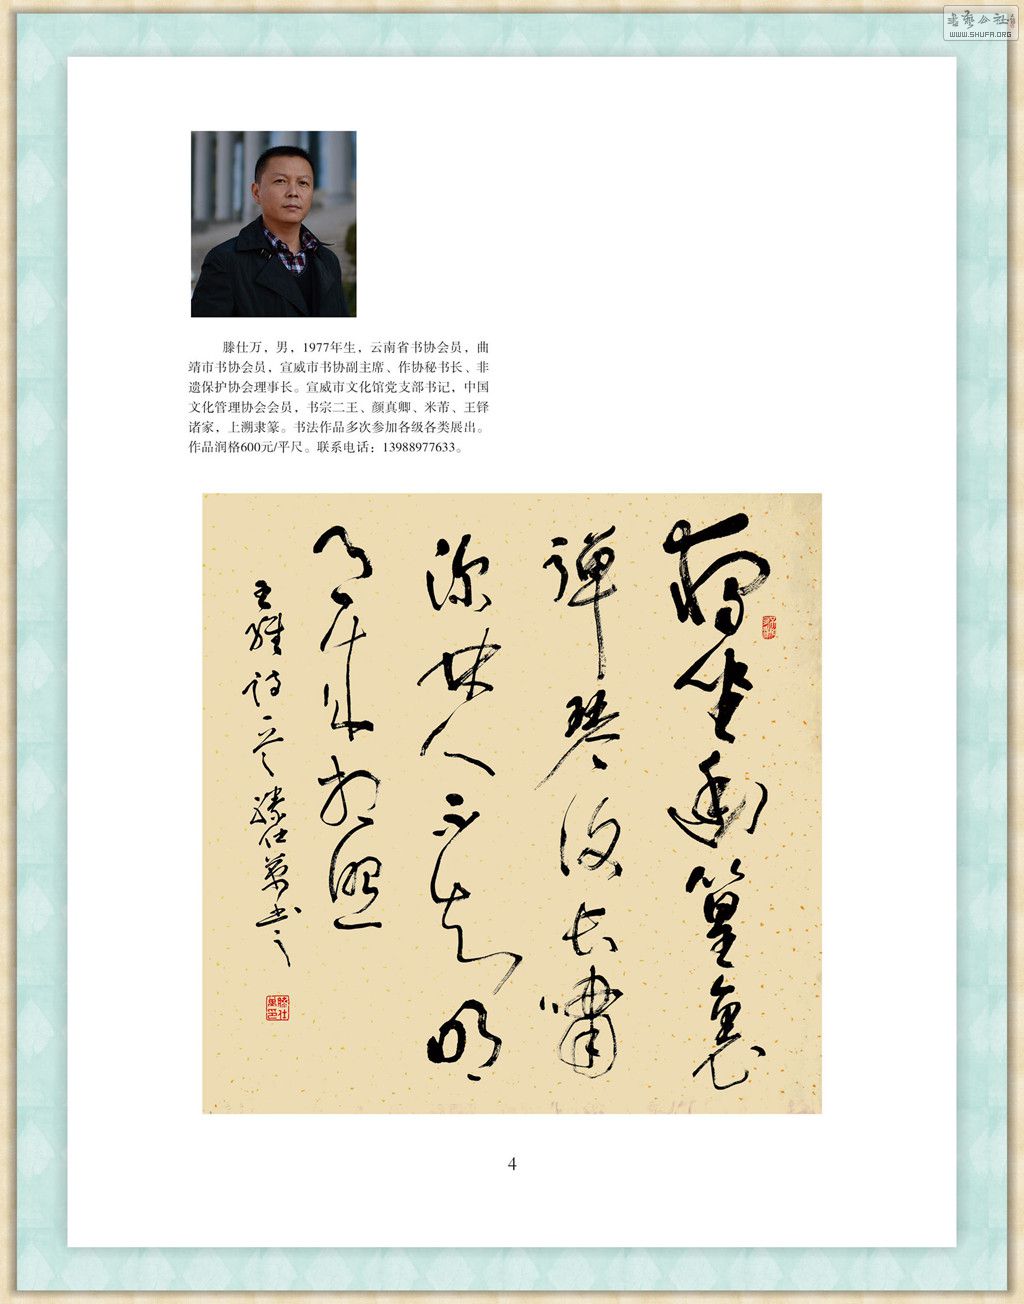 書藝公社
WWW.SHUFA.ORG
滕仕万，男，1977年生，云南省书协会员，曲
靖市书协会员，宣威市书协副主席、作协秘书长、非
遗保护协会理事长。宣威市文化馆党支部书记，中国
文化管理协会会员，书宗二王、颜真卿、米芾、王铎
诸家，上溯隶篆。书法作品多次参加各级各类展出。
作品润格600元/平尺。联系电话：13988977633。
獨坐幽篁裏
彈琴復長嘯
深林人不知明
月來相照
王維詩一首滕仕萬書
滕仕萬印
4